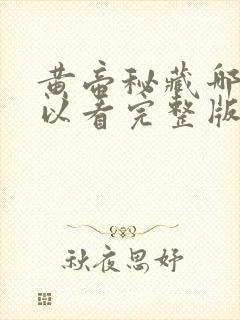 黄帝秘藏哪
以看完整版
秋夜思妤